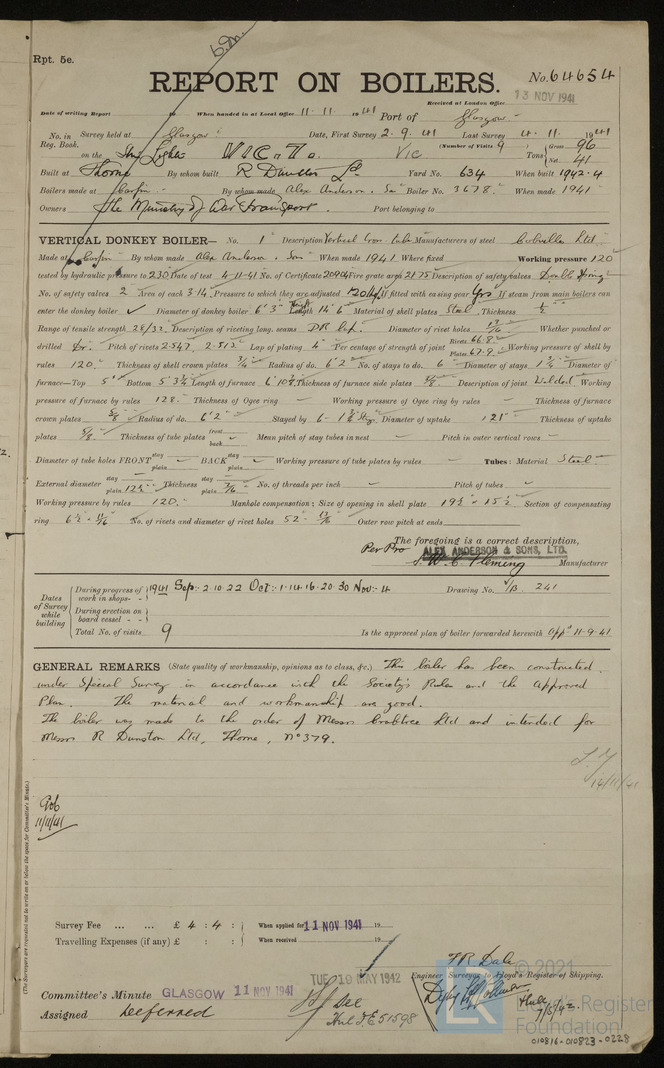 Rpt. 5e.
REPORT ON BOILERS.
No. 64654
13 NOV 1941
Date of writing Report 19 When handed in at Local Office 11.11. 1941 Port of Glasgow
Received at London Office
No. in Reg. Book. Survey held at Glasgow Date, First Survey 2.9.41 Last Survey 4.11. 1941
on the VIC. 7. VIC (Number of Visits 9) Tons Gross 96 Net 41
Built at Thorne By whom built R Dunston Ld. Yard No. 634 When built 1942-4
Boilers made at Carfin By whom made Alex Anderson & Son Boiler No. 3678. When made 1941
Owners The Ministry of War Transport. Port belonging to
VERTICAL DONKEY BOILER— No. 1 Description Vertical Cross tube Manufacturers of steel Colvilles Ltd.
Made at Carfin By whom made Alex Anderson & Sons When made 1941 Where fixed Working pressure 120
tested by hydraulic pressure to 230 Date of test 4-11-41 No. of Certificate 20904 Fire grate area 21.75 Description of safety valves Double Spring
No. of safety valves 2 Area of each 3.14 Pressure to which they are adjusted 120 If fitted with easing gear Yes If steam from main boilers can
enter the donkey boiler ✓ Diameter of donkey boiler 6' 3" Length 14' 6" Material of shell plates Steel Thickness 1/2
Range of tensile strength 28/32 Description of riveting long. seams DR lap. Diameter of rivet holes 13/16 Whether punched or
drilled Dr. Pitch of rivets 2.547, 2.513 Lap of plating 4" Per centage of strength of joint Rivets 66.8 Plates 67.9 Working pressure of shell by
rules 120. Thickness of shell crown plates 3/4 Radius of do. 6' 2" No. of stays to do. 6 Diameter of stays 1 3/4 Diameter of
furnace—Top 5' Bottom 5' 3 3/4 Length of furnace Thickness of furnace side plates Description of joint Welded Working
pressure of furnace by rules 128. Thickness of Ogee ring — Working pressure of Ogee ring by rules — Thickness of furnace
crown plates 5/8 Radius of do. 6' 2" Stayed by Diameter of uptake Thickness of uptake
plates 5/8 Thickness of tube plates front back Mean pitch of stay tubes in nest — Pitch in outer vertical rows —
Diameter of tube holes FRONT stay plain BACK stay plain Working pressure of tube plates by rules — Tubes: Material Steel
External diameter stay plain 12 1/2 Thickness stay plain 7/16 No. of threads per inch Pitch of tubes
Working pressure by rules 120. Manhole compensation: Size of opening in shell plate 19 1/2 × 15 1/2 Section of compensating
ring No. of rivets and diameter of rivet holes 52 - 13/16 Outer row pitch at ends
The foregoing is a correct description,
Per Pro ALEX ANDERSON & SONS, LTD.
W. C. Fleming Manufacturer
Dates of Survey while building
During progress of work in shops- - 1941 Sep: 2.10.22 Oct: 1.14.16.20.30 Nov: 4 Drawing No. 241
During erection on board vessel - -
Total No. of visits 9 Is the approved plan of boiler forwarded herewith App'd 11-9-41.
GENERAL REMARKS (State quality of workmanship, opinions as to class, &c.) This boiler has been constructed
under Special Survey in accordance with the Society's Rules and the approved
Plan. The material and workmanship are good.
The boiler was made to the order of Messrs Crabtree Ltd and intended for
Messrs R Dunston Ltd, Thorne, No 379.
14/11/41
11/11/41
(The Surveyors are requested not to write on or below the space for Committee's Minute.)
Survey Fee ... ... £ 4 : 4 : When applied for 11 NOV 1941 19
Travelling Expenses (if any) £ : : When received 19
TUE 19 MAY 1942
Engineer Surveyor to Lloyd's Register of Shipping.
Committee's Minute GLASGOW 11 NOV 1941
Assigned Deferred
See
Hul F.E 51598
Hull
7/5/42
© 2021
Lloyd's Register
Foundation
010816-010823-0228